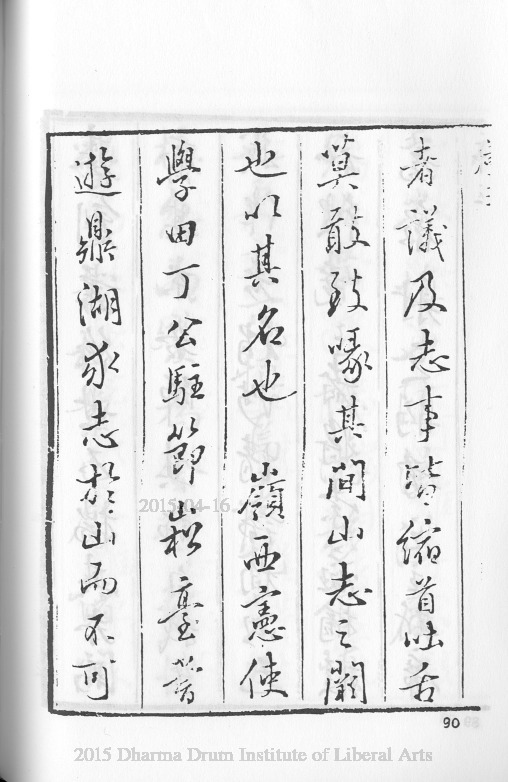 者議及志事皆縮首吐舌
莫敢致喙其間山志之闕
也以其名也　嶺西憲使
學田丁公駐節崧臺嘗
遊鼎湖求志於山而不可
90
2015-04-16
2015 Dharma Drum Institute of Liberal Arts